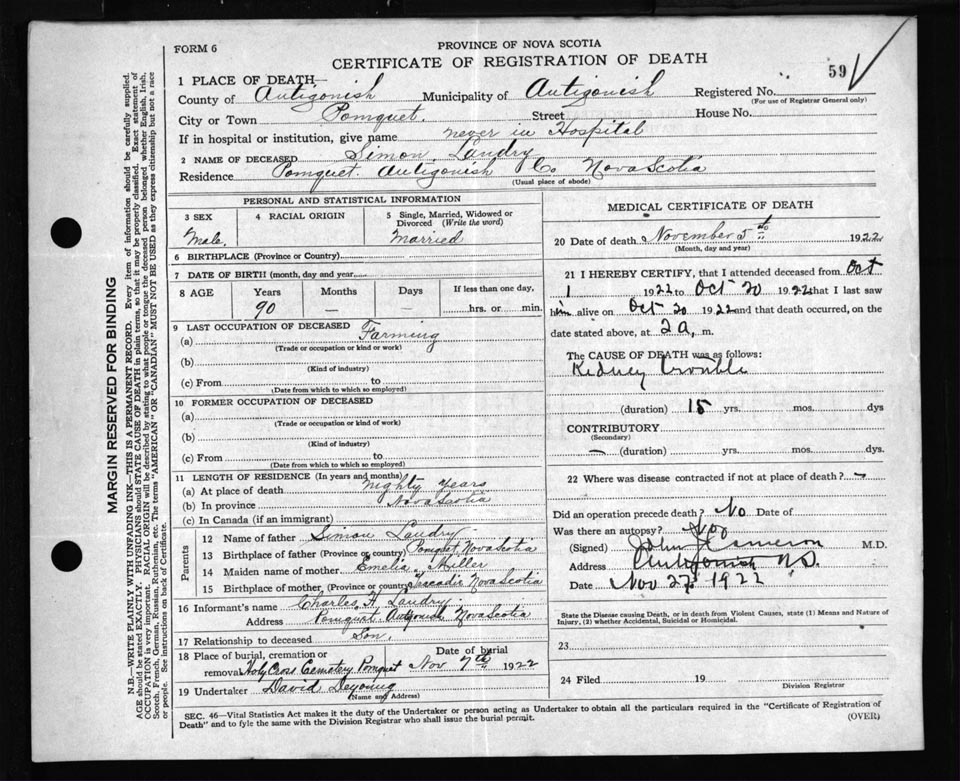 FORM 6
PROVINCE OF NOVA SCOTIA
CERTIFICATE OF REGISTRATION OF DEATH
59
1 PLACE OF DEATH—
County of Antigonish Municipality of Antigonish Registered No.
(For use of Registrar General only)
City or Town Pomquet. Street House No.
If in hospital or institution, give name never in Hospital
2 NAME OF DECEASED Simon Landry
Residence Pomquet. Antigonish Co. Nova Scotia
(Usual place of abode)
PERSONAL AND STATISTICAL INFORMATION
3 SEX
Male.
4 RACIAL ORIGIN
5 Single, Married, Widowed or Divorced (Write the word)
Married
6 BIRTHPLACE (Province or Country)
7 DATE OF BIRTH (month, day and year
8 AGE Years Months Days If less than one day,
90 — — hrs. or min.
9 LAST OCCUPATION OF DECEASED
(a) Farming
(Trade or occupation or kind or work)
(b)
(Kind of industry)
(c) From to
(Date from which to which so employed)
10 FORMER OCCUPATION OF DECEASED
(a)
(Trade or occupation or kind of work)
(b)
(Kind of industry)
(c) From to
(Date from which to which so employed)
11 LENGTH OF RESIDENCE (In years and months)
(a) At place of death Nighty Years
(b) In province Nova Scotia
(c) In Canada (if an immigrant)
Parents
12 Name of father Simon Landry
13 Birthplace of father (Province or country) Pomquet Nova Scotia
14 Maiden name of mother Emelia Miller
15 Birthplace of mother (Province or country) Tracadie Nova Scotia
16 Informant's name Charles H. Landry
Address Pomquet Antigonish Nova Scotia
17 Relationship to deceased Son.
18 Place of burial, cremation or removal Holy Cross Cemetery Pomquet
Date of burial Nov 7th 1922
19 Undertaker David Deyoung
(Name and Address)
MEDICAL CERTIFICATE OF DEATH
20 Date of death November 5th 1922
(Month, day and year)
21 I HEREBY CERTIFY, that I attended deceased from Oct
1 1922 to Oct 20 1922 that I last saw
him alive on Oct 20 1922 and that death occurred, on the
date stated above, at 2 a, m.
The CAUSE OF DEATH was as follows:
Kidney trouble
(duration) 15 yrs. mos. dys
CONTRIBUTORY
(Secondary)
— (duration) yrs. mos. dys.
22 Where was disease contracted if not at place of death? —
Did an operation precede death? No Date of
Was there an autopsy? No
(Signed) John J Cameron M.D.
Address Antigonish N.S.
Date Nov 27, 1922
State the Disease causing Death, or in death from Violent Causes, state (1) Means and Nature of
Injury, (2) whether Accidental, Suicidal or Homicidal.
23
24 Filed 19
Division Registrar
SEC. 46—Vital Statistics Act makes it the duty of the Undertaker or person acting as Undertaker to obtain all the particulars required in the "Certificate of Registration of
Death" and to fyle the same with the Division Registrar who shall issue the burial permit.
(OVER)
MARGIN RESERVED FOR BINDING
N.B.—WRITE PLAINLY WITH UNFADING INK—THIS IS A PERMANENT RECORD. Every item of information should be carefully supplied.
AGE should be stated EXACTLY. PHYSICIANS should STATE CAUSE OF DEATH in plain terms, so that it may be properly classified. Exact statement of
OCCUPATION is very important. RACIAL ORIGIN will be described by stating to what people or tongue the deceased person belonged whether English, Irish,
Scotch, French, German, Russian, Ruthenian, etc. The terms "AMERICAN" OR "CANADIAN" MUST NOT BE USED as they express citizenship but not a race
or people. See instructions on back of Certificate.